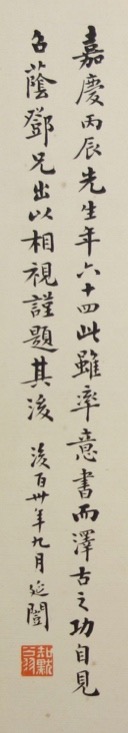 嘉慶丙辰先生年六十四此雖率意書而澤古之功自見
召蔭鄧兄出以相視謹題其後 後百卅年九月 延闓